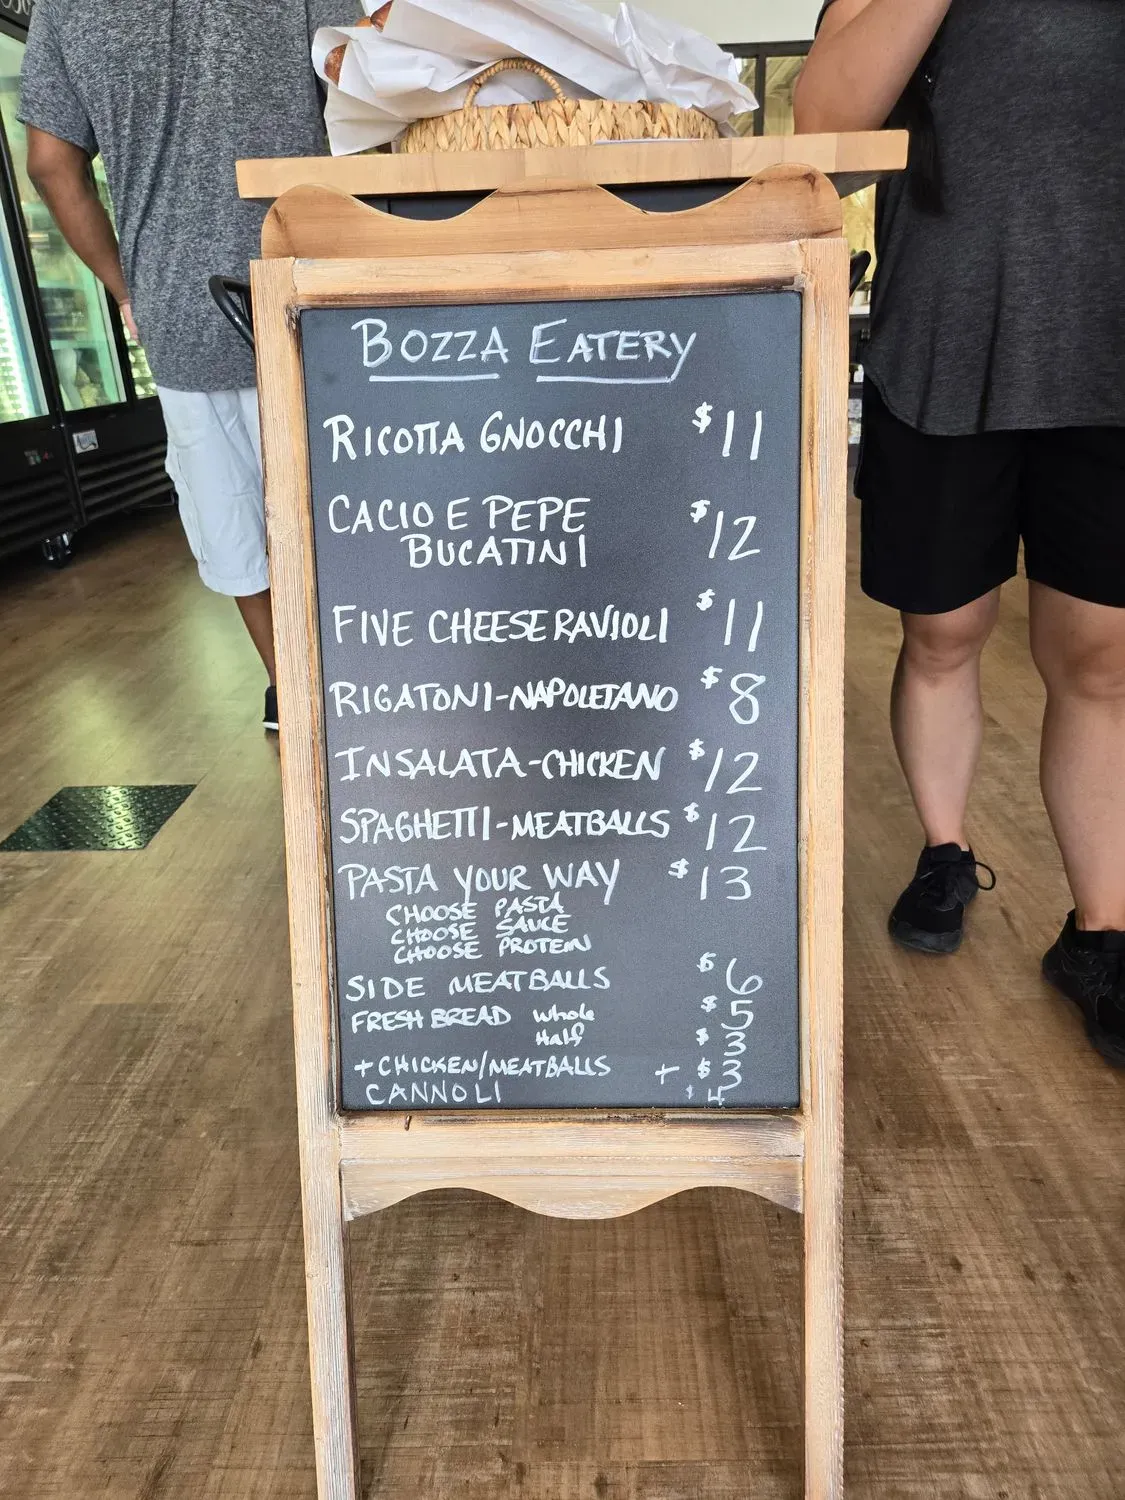 BOZZA EATERY
RICOTTA GNOCCHI $11
CACIO E PEPE
BUCATINI $12
FIVE CHEESE RAVIOLI $11
RIGATONI-NAPOLETANO $8
INSALATA-CHICKEN $12
SPAGHETTI-MEATBALLS $12
PASTA YOUR WAY $13
CHOOSE PASTA
CHOOSE SAUCE
CHOOSE PROTEIN
SIDE MEATBALLS $6
FRESH BREAD Whole $5
Half $3
+CHICKEN/MEATBALLS + $3
CANNOLI $4